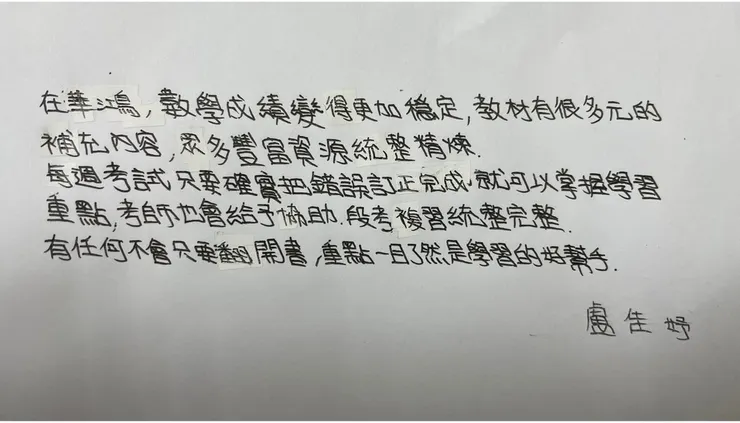 在華鴻，數學成績變得更加穩定，教材有很多元的
補充內容，眾多豐富資源統整精煉．
每週考試只要確實把錯誤訂正完成就可以掌握學習
重點，考師也會給予協助．段考複習統整完整．
有任何不會只要翻開書，重點一目了然是學習的好幫手．
盧佳妤